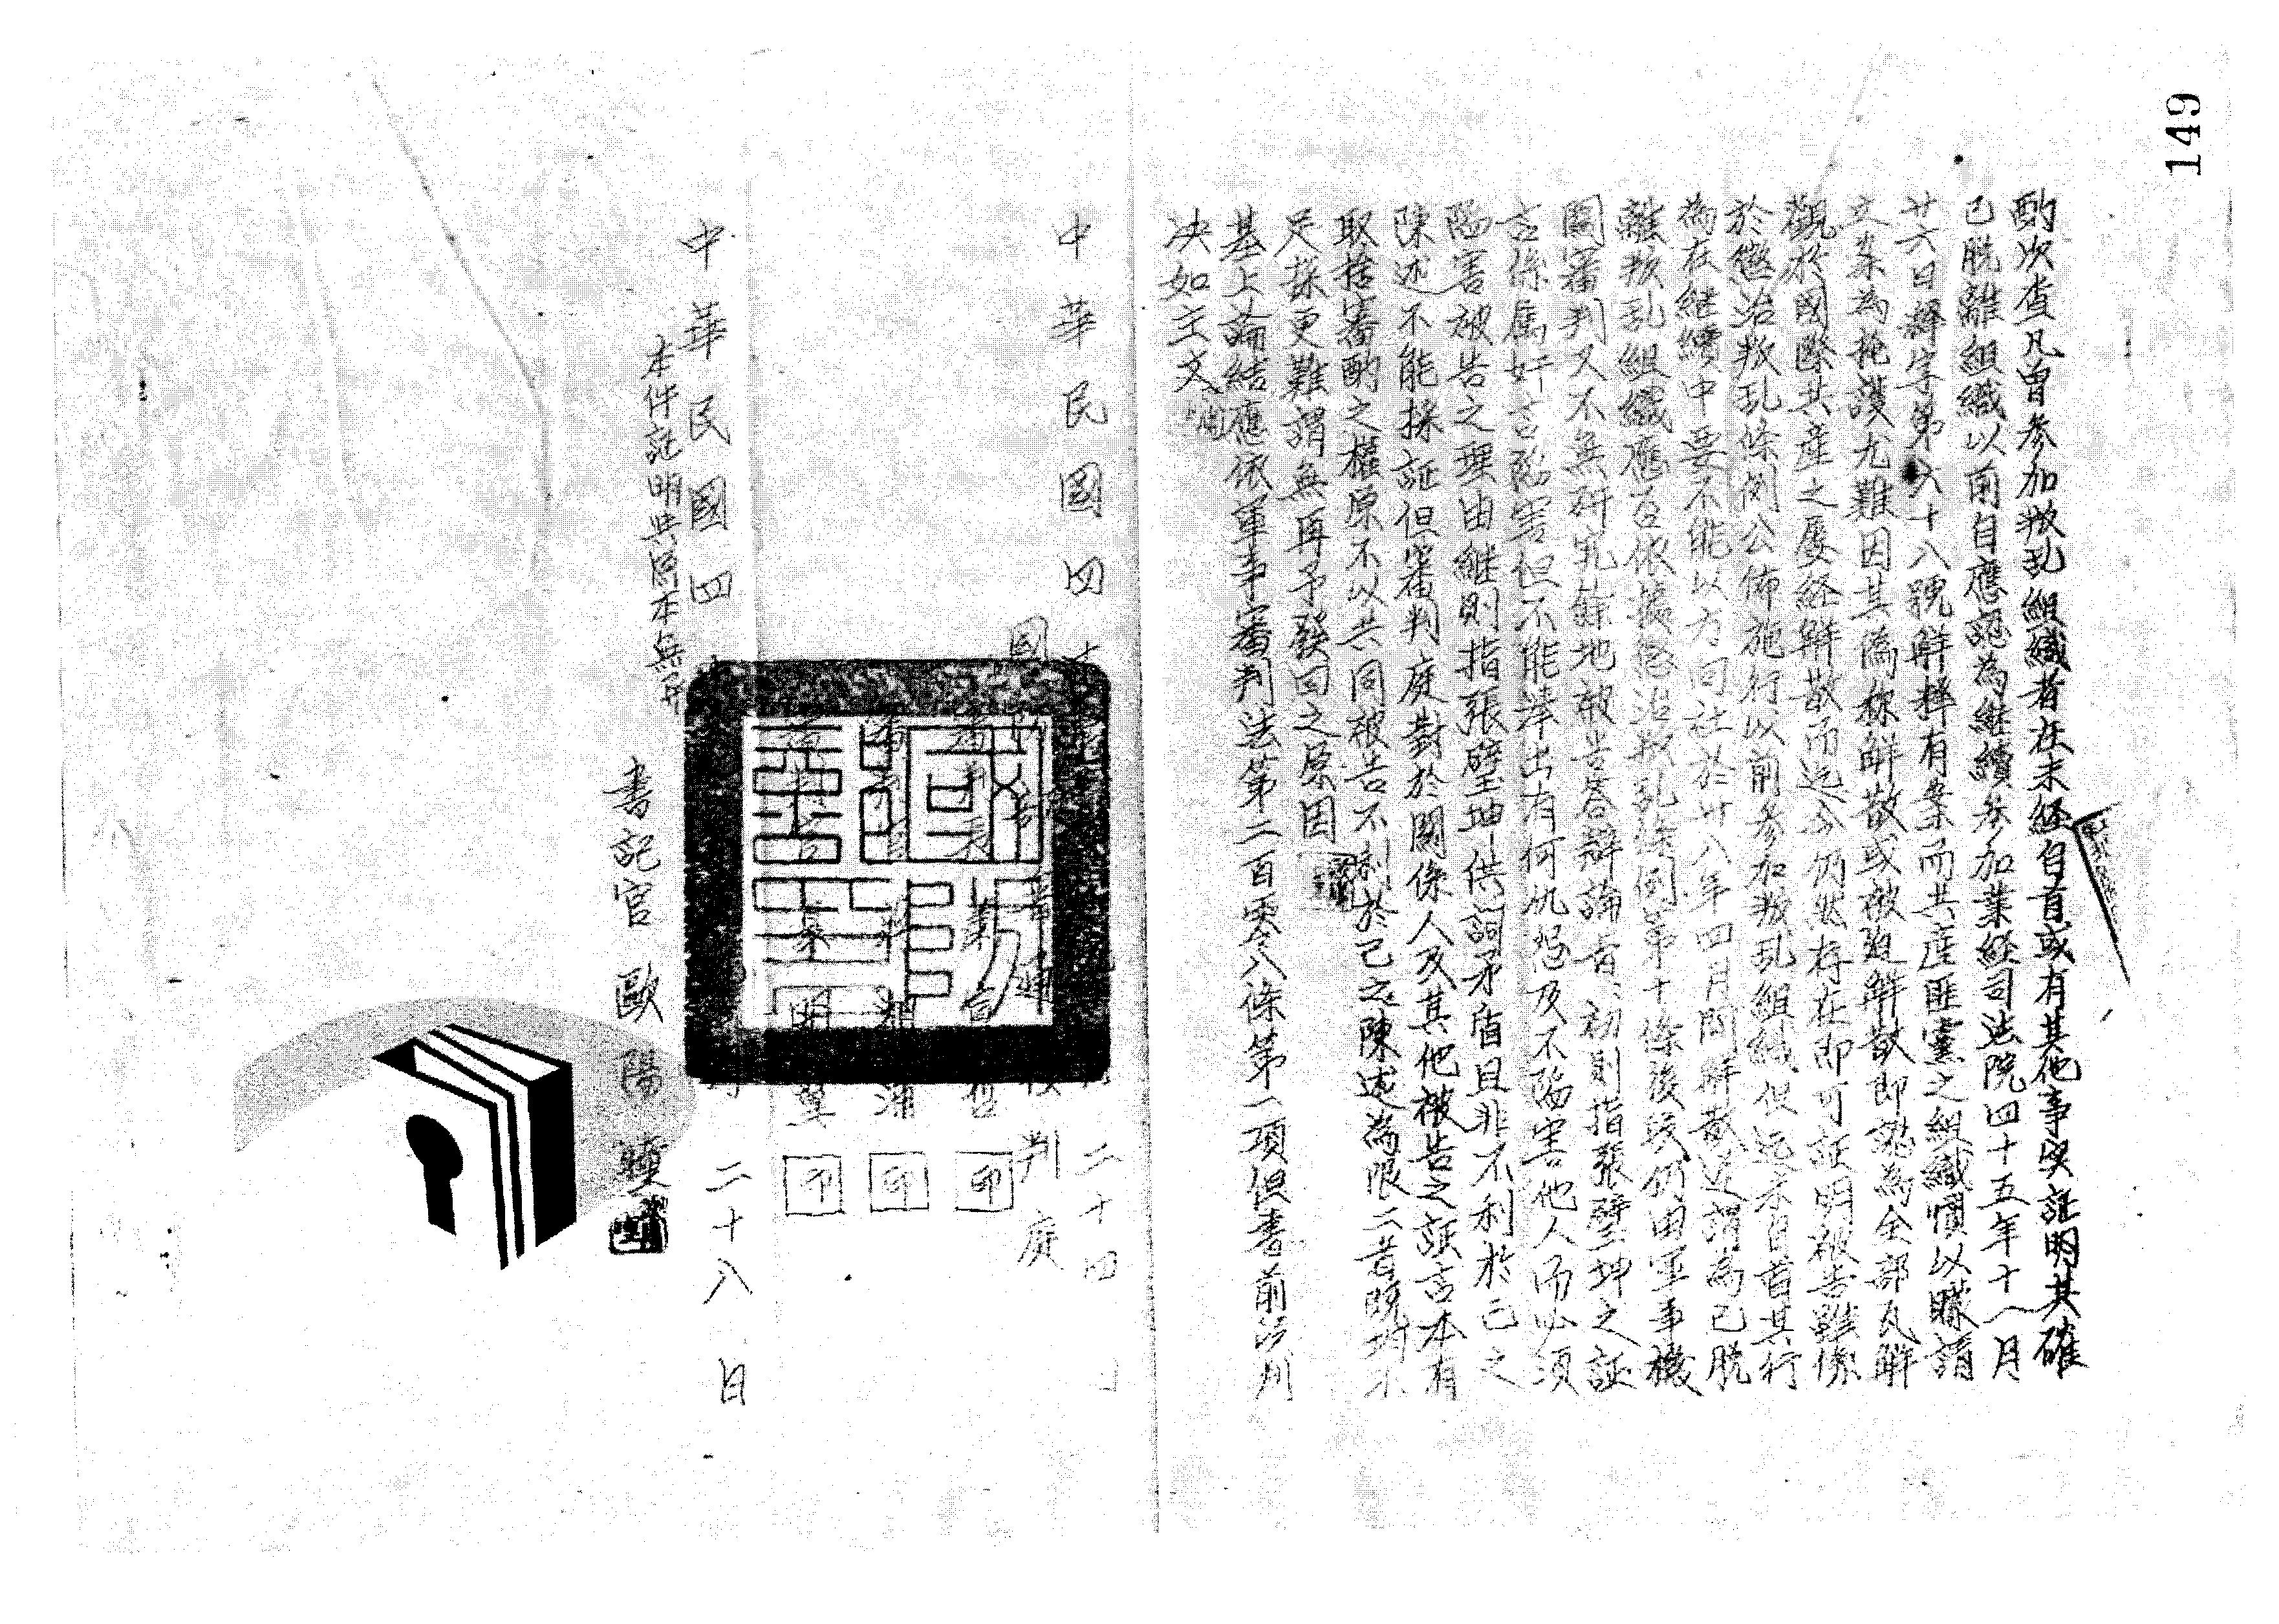 149
酌次查凡曾參加叛乱組織者在未經自首或有其他事实証明其確
已脫離組織以前自應認為繼續參加業經司法院四十五年十一月
廿六日釋字第六十八號解釋有案而共產匪黨之組織慣以矇請
文朵為掩護尤難因其偽称解散或被迫解散即認為全部瓦解
觀於國際共產之屡経解散而迄今仍然存在即可証明被告雖係
於懲治叛乱條例公佈施行以前參加叛乱組織但迄未自首其行
為在継續中要不能以方向社於卅八年四月間解散遂謂為已脫
離叛乱組織應否依據懲治叛乱條例第十條後段仍由軍事機
関審判又不無研究餘地被告答辯論旨初則指張壁坤之証
言係属奸言陷害但不能举出有何仇怨及不陷害他人而必須
陷害被告之理由継則指張壁坤供詞矛盾且非不利於己之
陳述不能採証但審判庭對於関係人及其他被告之証言本有
取捨審酌之權原不以共同被告不利於己之陳述為限二者既均不
足採更難謂無再予發回之原因
基上論結應依軍事審判法第二百零八條第一項但書前段判
决如主文
中華民國四 二十四日
國 判庭
印
印
印
中華民國四 二十八日
本件証明與原本無異
書記官 歐陽